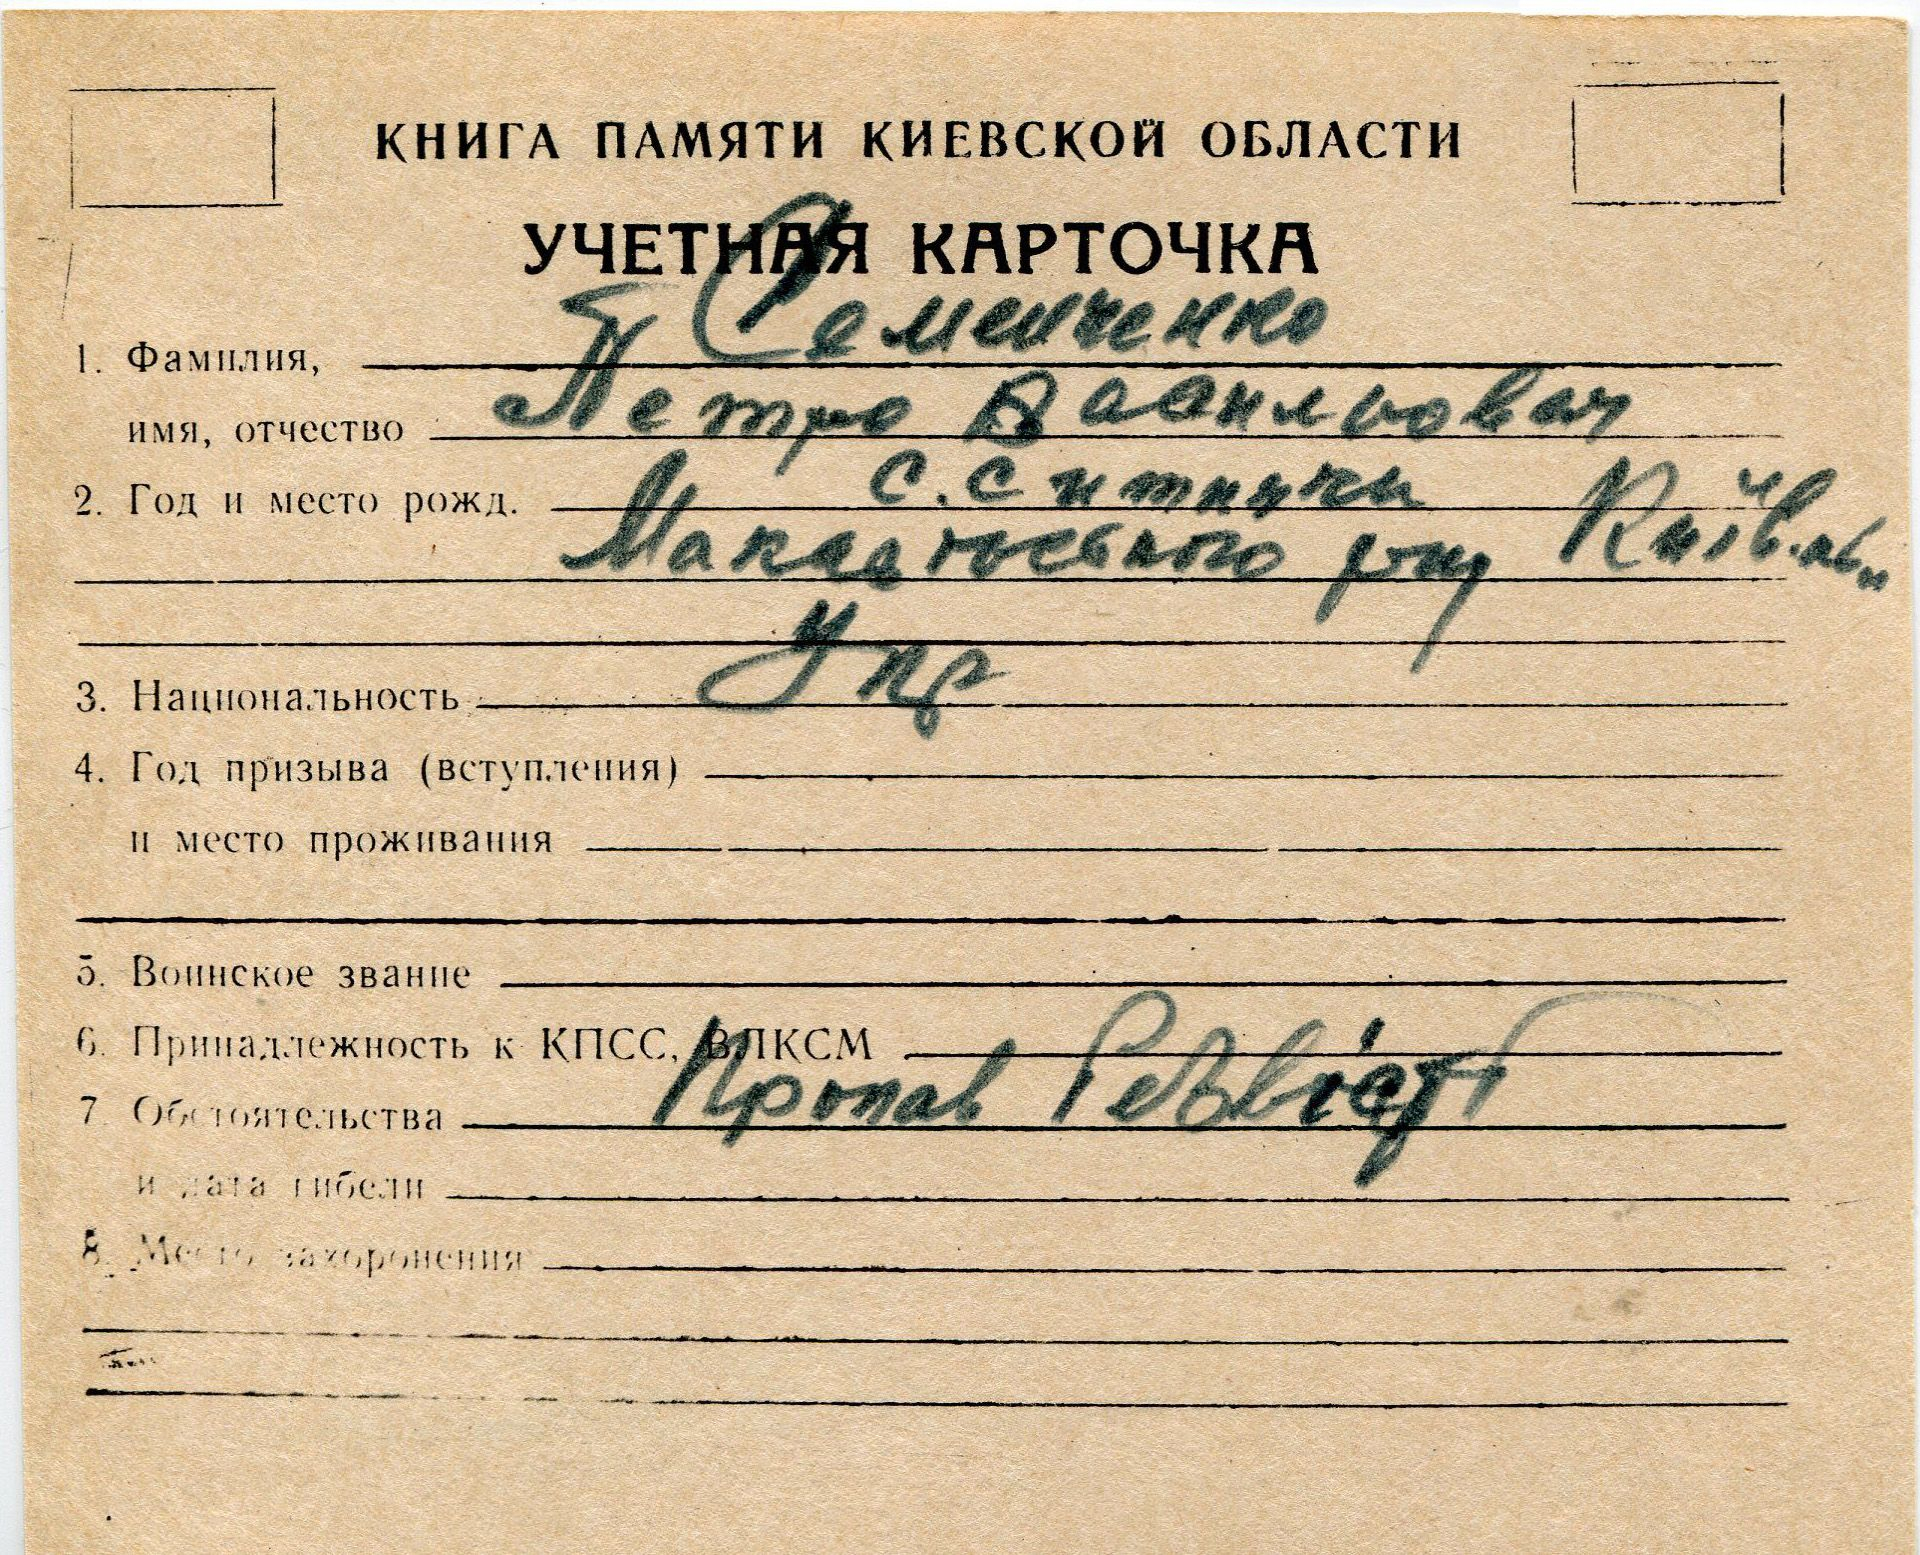 КНИГА ПАМЯТИ КИЕВСКОЙ ОБЛАСТИ
УЧЕТНАЯ КАРТОЧКА
Семенченко
1. Фамилия,
Петро Васильович
имя, отчество
с. Ситники
2. Год и место рожд.
Макарівського р-ну Київ.
Укр
3. Национальность
4. Год призыва (вступления)
и место проживания
5. Воинское звание
6. Принадлежность к КПСС, ВЛКСМ
Пропав безвісти
7. Обстоятельства
и дата гибели
8. Место захоронения